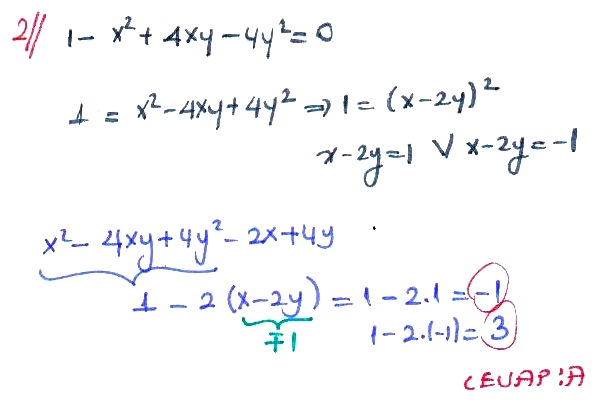 2// 1 - x² + 4xy - 4y² = 0
1 = x² - 4xy + 4y² ⇒ 1 = (x - 2y)²
x - 2y = 1 ∨ x - 2y = -1
x² - 4xy + 4y² - 2x + 4y
1 - 2(x - 2y) = 1 - 2.1 = -1
∓1
1 - 2.(-1) = 3
CEVAP : A